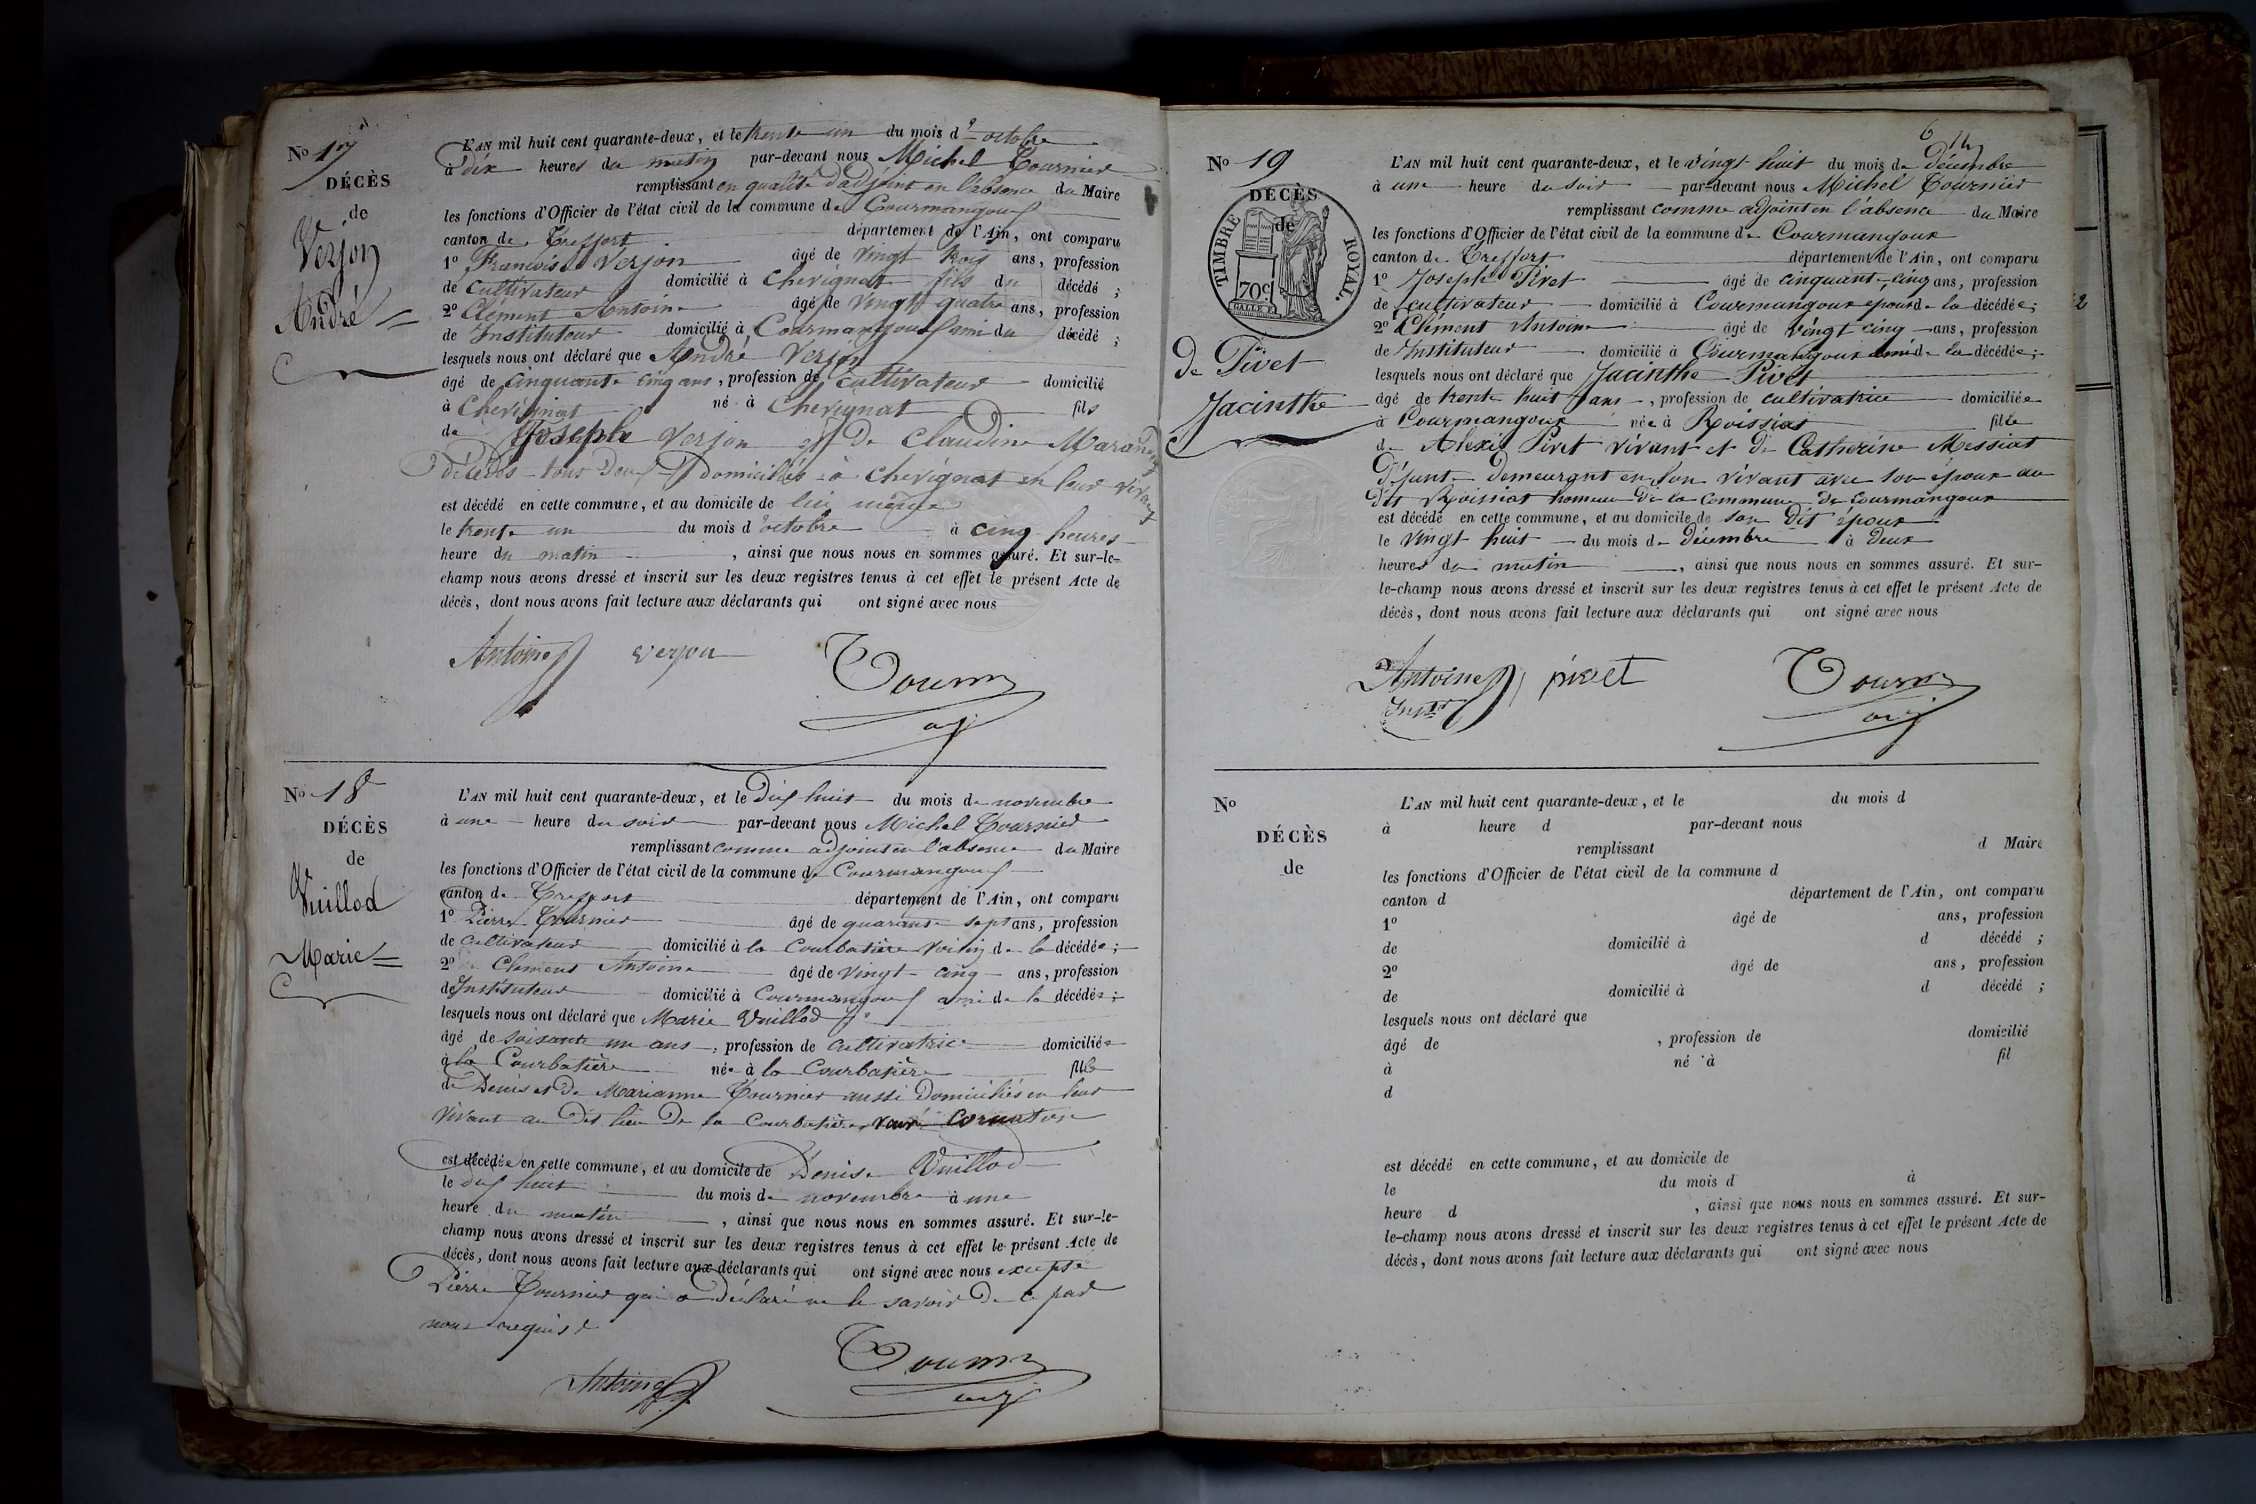 No 17
DÉCÈS
de
Verjon
André
L'AN mil huit cent quarante-deux, et le trente un du mois d'octobre
à dix heures du matin par-devant nous Michel Tournier
remplissant en qualité d'adjoint en l'absence du Maire
les fonctions d'Officier de l'état civil de la commune de Courmangoux
canton de Treffort département de l'Ain, ont comparu
1º François Verjon âgé de vingt trois ans, profession
de cultivateur domicilié à Chevignat fils du décédé ;
2º Clément Antoine âgé de vingt quatre ans, profession
de Instituteur domicilié à Courmangoux ami du décédé ;
lesquels nous ont déclaré que André Verjon
âgé de cinquante cinq ans, profession de cultivateur domicilié
à Chevignat né à Chevignat fils
de Joseph Verjon et de Claudine
décédés tous deux domiciliés à Chevignat en leur vivant
est décédé en cette commune, et au domicile de lui même
le trente un du mois d'octobre à cinq heures
heure du matin , ainsi que nous nous en sommes assuré. Et sur-le-
champ nous avons dressé et inscrit sur les deux registres tenus à cet effet le présent Acte de
décès, dont nous avons fait lecture aux déclarants qui ont signé avec nous
Antoine verjon Tournier
adj
No 18
DÉCÈS
de
Vuillod
Marie
L'AN mil huit cent quarante-deux, et le dix huit du mois de novembre
à une heure du soir par-devant nous Michel Tournier
remplissant comme adjoint en l'absence du Maire
les fonctions d'Officier de l'état civil de la commune de Courmangoux
canton de Treffort département de l'Ain, ont comparu
1º Pierre Tournier âgé de quarante sept ans, profession
de cultivateur domicilié à la Courbatière voisin de la décédée ;
2º Clément Antoine âgé de vingt cinq ans, profession
de Instituteur domicilié à Courmangoux ami de la décédée ;
lesquels nous ont déclaré que Marie Vuillod
âgé de soixante un ans, profession de cultivatrice domiciliée
à la Courbatière née à la Courbatière fille
de Denis et de Marianne Tournier aussi domiciliés en leur
vivant au dit lieu de la Courbatière
est décédée en cette commune, et au domicile de Denis Vuillod
le dix huit du mois de novembre à une
heure du matin , ainsi que nous nous en sommes assuré. Et sur-le-
champ nous avons dressé et inscrit sur les deux registres tenus à cet effet le présent Acte de
décès, dont nous avons fait lecture aux déclarants qui ont signé avec nous excepté
Pierre Tournier qui a déclaré ne le savoir de ce par
nous requis
Antoine Tournier
adj
No 19
DÉCÈS
de
TIMBRE ROYAL.
70c
de Pivet
Jacinthe
L'AN mil huit cent quarante-deux, et le vingt huit du mois de décembre
à une heure du soir par-devant nous Michel Tournier
remplissant comme adjoint en l'absence du Maire
les fonctions d'Officier de l'état civil de la commune de Courmangoux
canton de Treffort département de l'Ain, ont comparu
1º Joseph Pivet âgé de cinquante-cinq ans, profession
de cultivateur domicilié à Courmangoux epoux de la décédée ;
2º Clément Antoine âgé de vingt cinq ans, profession
de Instituteur domicilié à Courmangoux ami de la décédée ;
lesquels nous ont déclaré que Jacinthe Pivet
âgé de trente huit ans, profession de cultivatrice domiciliée
à Courmangoux née à Roissiat fille
de Alexis Pivet vivant et de Catherine Messiat
défunte demeurant en son vivant avec son époux au
dit Roissiat hameau de la commune de Courmangoux
est décédé en cette commune, et au domicile de son dit époux
le vingt huit du mois de décembre à deux
heures du matin , ainsi que nous nous en sommes assuré. Et sur-
le-champ nous avons dressé et inscrit sur les deux registres tenus à cet effet le présent Acte de
décès, dont nous avons fait lecture aux déclarants qui ont signé avec nous
Antoine pivet Tournier
adj
No
DÉCÈS
de
L'AN mil huit cent quarante-deux, et le du mois d
à heure d par-devant nous
remplissant d Maire
les fonctions d'Officier de l'état civil de la commune d
canton d département de l'Ain, ont comparu
1º âgé de ans, profession
de domicilié à d décédé ;
2º âgé de ans, profession
de domicilié à d décédé ;
lesquels nous ont déclaré que
âgé de , profession de domicilié
à né à fil
d
est décédé en cette commune, et au domicile de
le du mois d à
heure d , ainsi que nous nous en sommes assuré. Et sur-
le-champ nous avons dressé et inscrit sur les deux registres tenus à cet effet le présent Acte de
décès, dont nous avons fait lecture aux déclarants qui ont signé avec nous